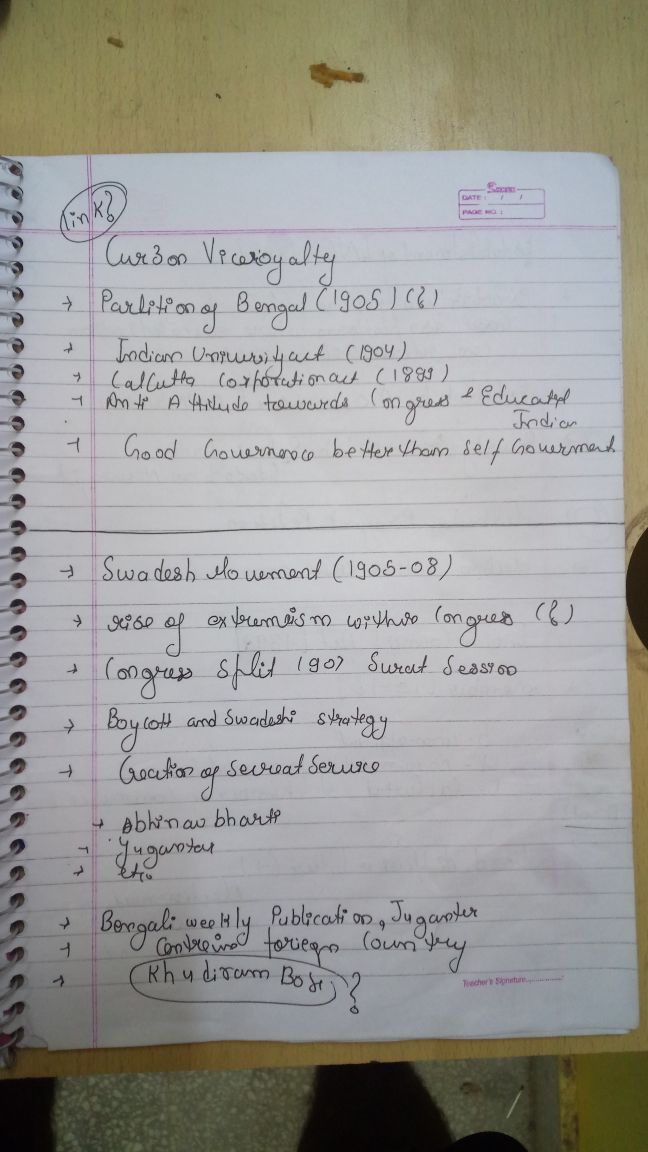 link?
DATE: / /
PAGE NO.:
Curzon Viceroyalty
→ Partition of Bengal (1905) (?)
→ Indian University act (1904)
→ Calcutta Corporation act (1899)
→ Anti Attitude towards Congress & Educated
Indian
→ Good Governence better than Self Government
→ Swadesh Movement (1905-08)
→ rise of extremism within Congress (?)
→ Congress Split 1907 Surat Session
→ Boycott and Swadeshi strategy
→ Creation of Secreat Service
→ Abhinav bharti
→ Yugantar
→ etc
→ Bengali weekly Publication, Juganter
→ foriegn Country
→ Khudiram Bose ?
Teacher's Signature